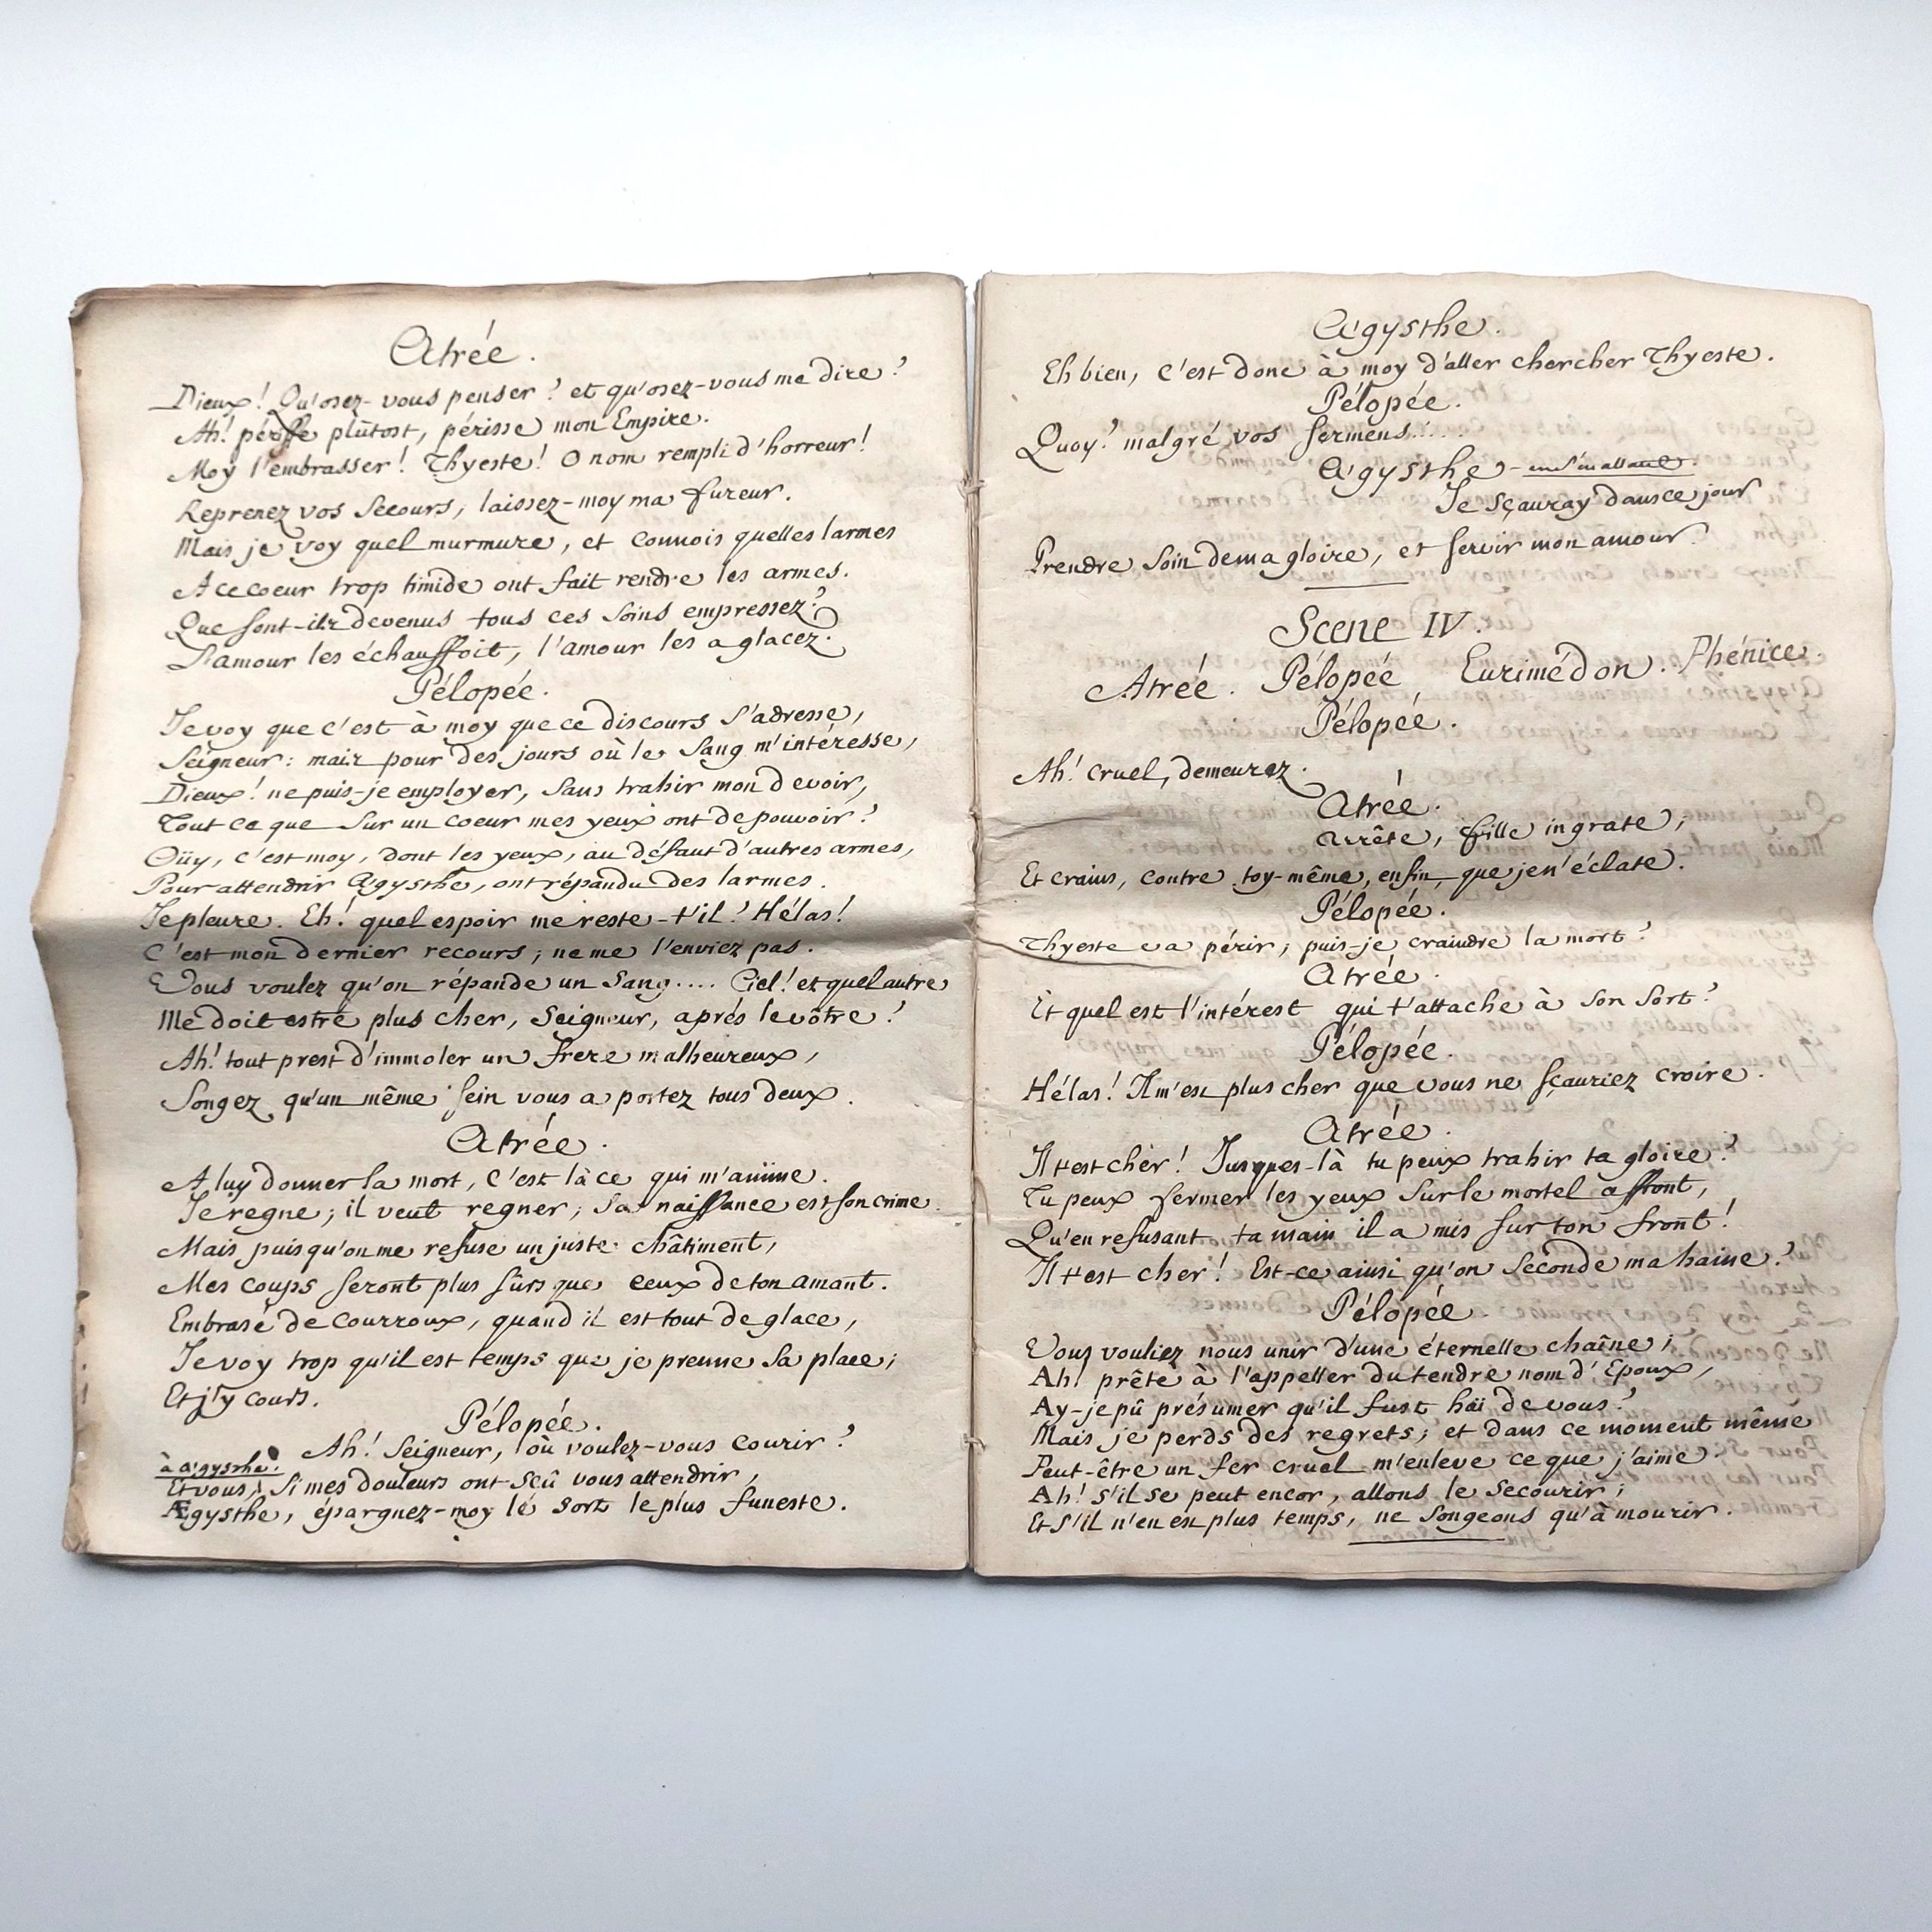 Atrée.
Dieux! Qu'osez-vous penser? et qu'osez-vous me dire?
Ah! périsse plûtost, périsse mon Empire.
Moy l'embrasser! Thyeste! O nom rempli d'horreur!
Reprenez vos Secours, laissez-moy ma fureur.
Mais je voy quel murmure, et connois quelles larmes
A ce coeur trop timide ont fait rendre les armes.
Que sont-ils devenus tous ces soins empressez?
L'amour les échauffoit, l'amour les a glacez.
Pélopée.
Je voy que c'est à moy que ce discours s'adresse,
Seigneur: mais pour des jours où le Sang m'intéresse,
Dieux! ne puis-je employer, sans trahir mon devoir,
Tout ce que sur un coeur mes yeux ont de pouvoir?
Oüy, c'est moy, dont les yeux, au défaut d'autres armes,
Pour attendrir Ægysthe, ont répandu des larmes.
Je pleure. Eh! quel espoir me reste-t'il? Hélas!
C'est mon dernier recours; ne me l'enviez pas.
Vous voulez qu'on répande un Sang.... Ciel! et quel autre
Me doit estre plus cher, Seigneur, aprés le vôtre?
Ah! tout prest d'immoler un frere malheureux,
Songez qu'un même sein vous a portez tous deux.
Atrée.
A luy donner la mort, c'est là ce qui m'anime.
Je regne; il veut regner; Sa naissance est son crime.
Mais puisqu'on me refuse un juste châtiment,
Mes coups seront plus sûrs que ceux de ton amant.
Embrasé de courroux, quand il est tout de glace,
Je voy trop qu'il est temps que je prenne Sa place;
Et j'y cours.
Pélopée.
Ah! Seigneur, où voulez-vous courir?
à Ægysthe.
Et vous, Si mes douleurs ont sçû vous attendrir,
Ægysthe, épargnez-moy le sort le plus funeste.
Ægysthe.
Eh bien, c'est donc à moy d'aller chercher Thyeste.
Pélopée.
Quoy? malgré vos sermens.....
Ægysthe - en s'en allant.
Je sçauray dans ce jour
Prendre soin de ma gloire, et servir mon amour.
Scene IV.
Atrée. Pélopée Eurimédon. Phénice.
Pélopée.
Ah! cruel, demeurez.
Atrée.
Arrête, fille ingrate;
Et crains, contre toy-même, enfin, que je n'éclate.
Pélopée.
Thyeste va périr; puis-je craindre la mort?
Atrée.
Et quel est l'intérest qui t'attache à son sort?
Pélopée.
Hélas! Il m'est plus cher que vous ne sçauriez croire.
Atrée.
Il t'est cher! Jusques-là tu peux trahir ta gloire?
Tu peux fermer les yeux sur le mortel affront,
Qu'en refusant ta main il a mis sur ton front!
Il t'est cher! Est-ce ainsi qu'on seconde ma haine?
Pélopée
Vous vouliez nous unir d'une éternelle chaîne;
Ah! prête à l'appeller du tendre nom d'Epoux,
Ay-je pû présumer qu'il fust haï de vous?
Mais je perds des regrets; et dans ce moment même
Peut-être un fer cruel m'enleve ce que j'aime.
Ah! s'il se peut encor, allons le secourir;
Et s'il n'en est plus temps, ne songeons qu'à mourir.